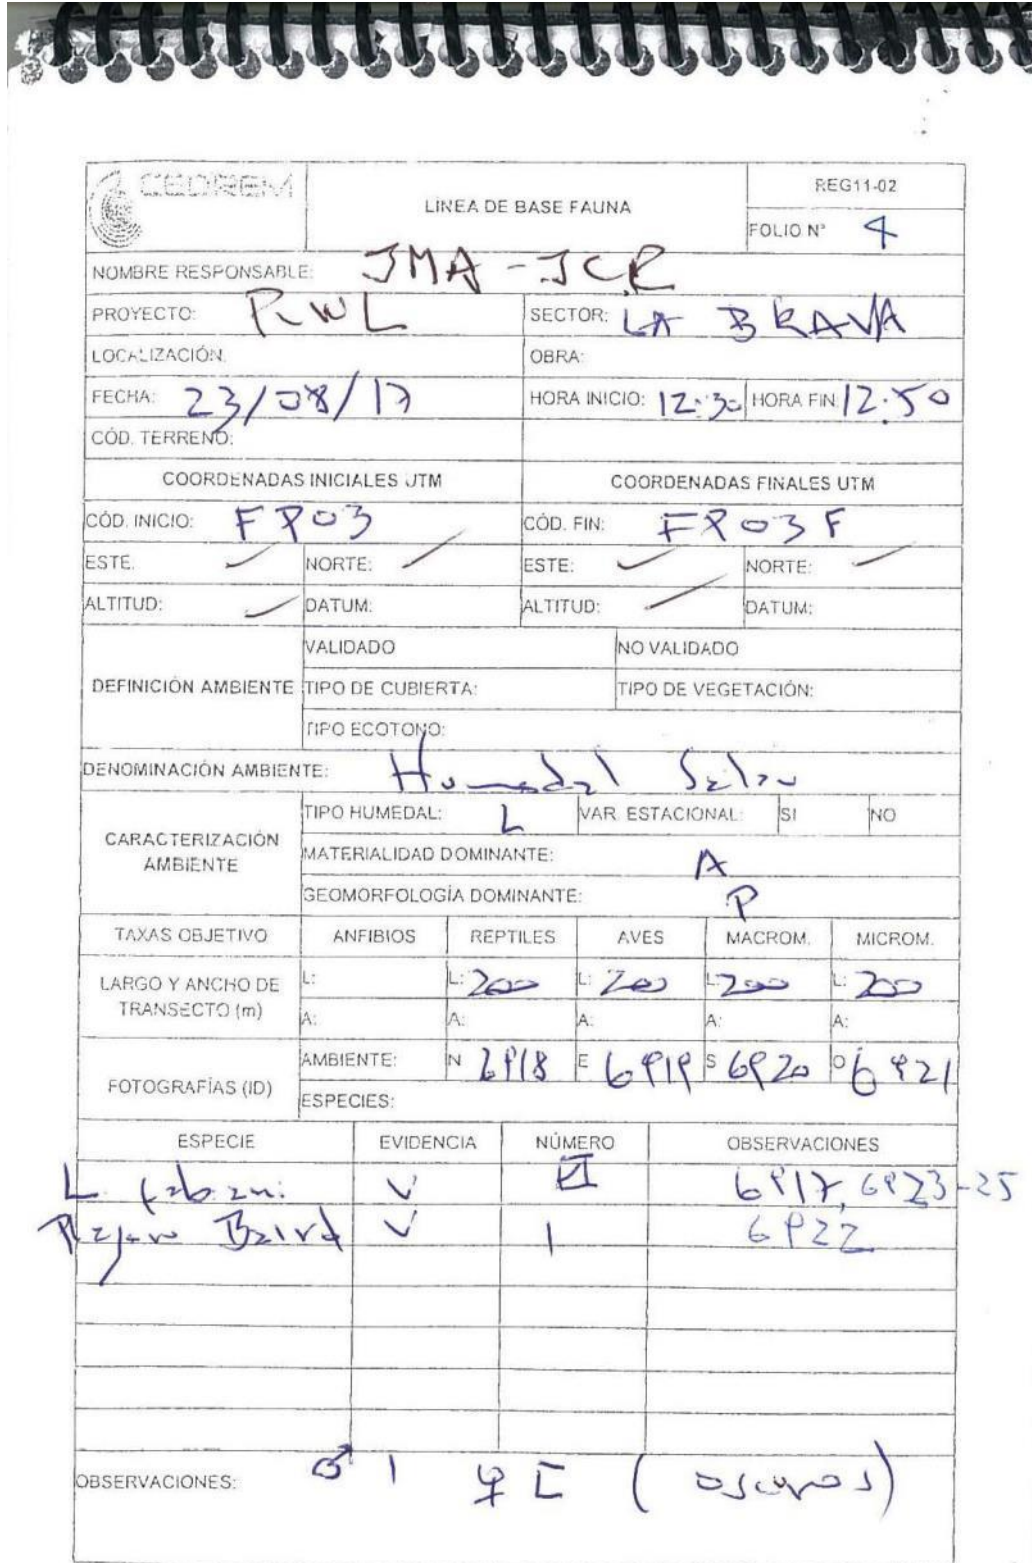 CEDREM
LÍNEA DE BASE FAUNA
REG11-02
FOLIO N° 4
NOMBRE RESPONSABLE: JMA - JCR
PROYECTO: RWL SECTOR: LA BRAVA
LOCALIZACIÓN: OBRA:
FECHA: 23/08/17 HORA INICIO: 12:30 HORA FIN: 12:50
CÓD. TERRENO:
COORDENADAS INICIALES UTM COORDENADAS FINALES UTM
CÓD. INICIO: FP03 CÓD. FIN: FP03F
ESTE: NORTE: ESTE: NORTE:
ALTITUD: DATUM: ALTITUD: DATUM:
VALIDADO NO VALIDADO
DEFINICIÓN AMBIENTE TIPO DE CUBIERTA: TIPO DE VEGETACIÓN:
TIPO ECOTONO:
DENOMINACIÓN AMBIENTE: Humedal
TIPO HUMEDAL: L VAR. ESTACIONAL: SI NO
CARACTERIZACIÓN AMBIENTE
MATERIALIDAD DOMINANTE: A
GEOMORFOLOGÍA DOMINANTE: P
TAXAS OBJETIVO ANFIBIOS REPTILES AVES MACROM. MICROM.
LARGO Y ANCHO DE TRANSECTO (m)
L: L: 200 L: 200 L: 200 L: 200
A: A: A: A: A:
FOTOGRAFÍAS (ID)
AMBIENTE: N 6918 E 6919 S 6920 O 6921
ESPECIES:
ESPECIE EVIDENCIA NÚMERO OBSERVACIONES
L. fabiani V 6917, 6923-25
Baird V 1 6922
OBSERVACIONES: ♂ 1 ♀ (oscuros)